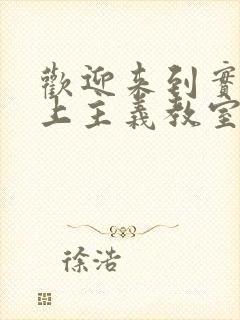 歡迎來到實
上主義教室
徐浩